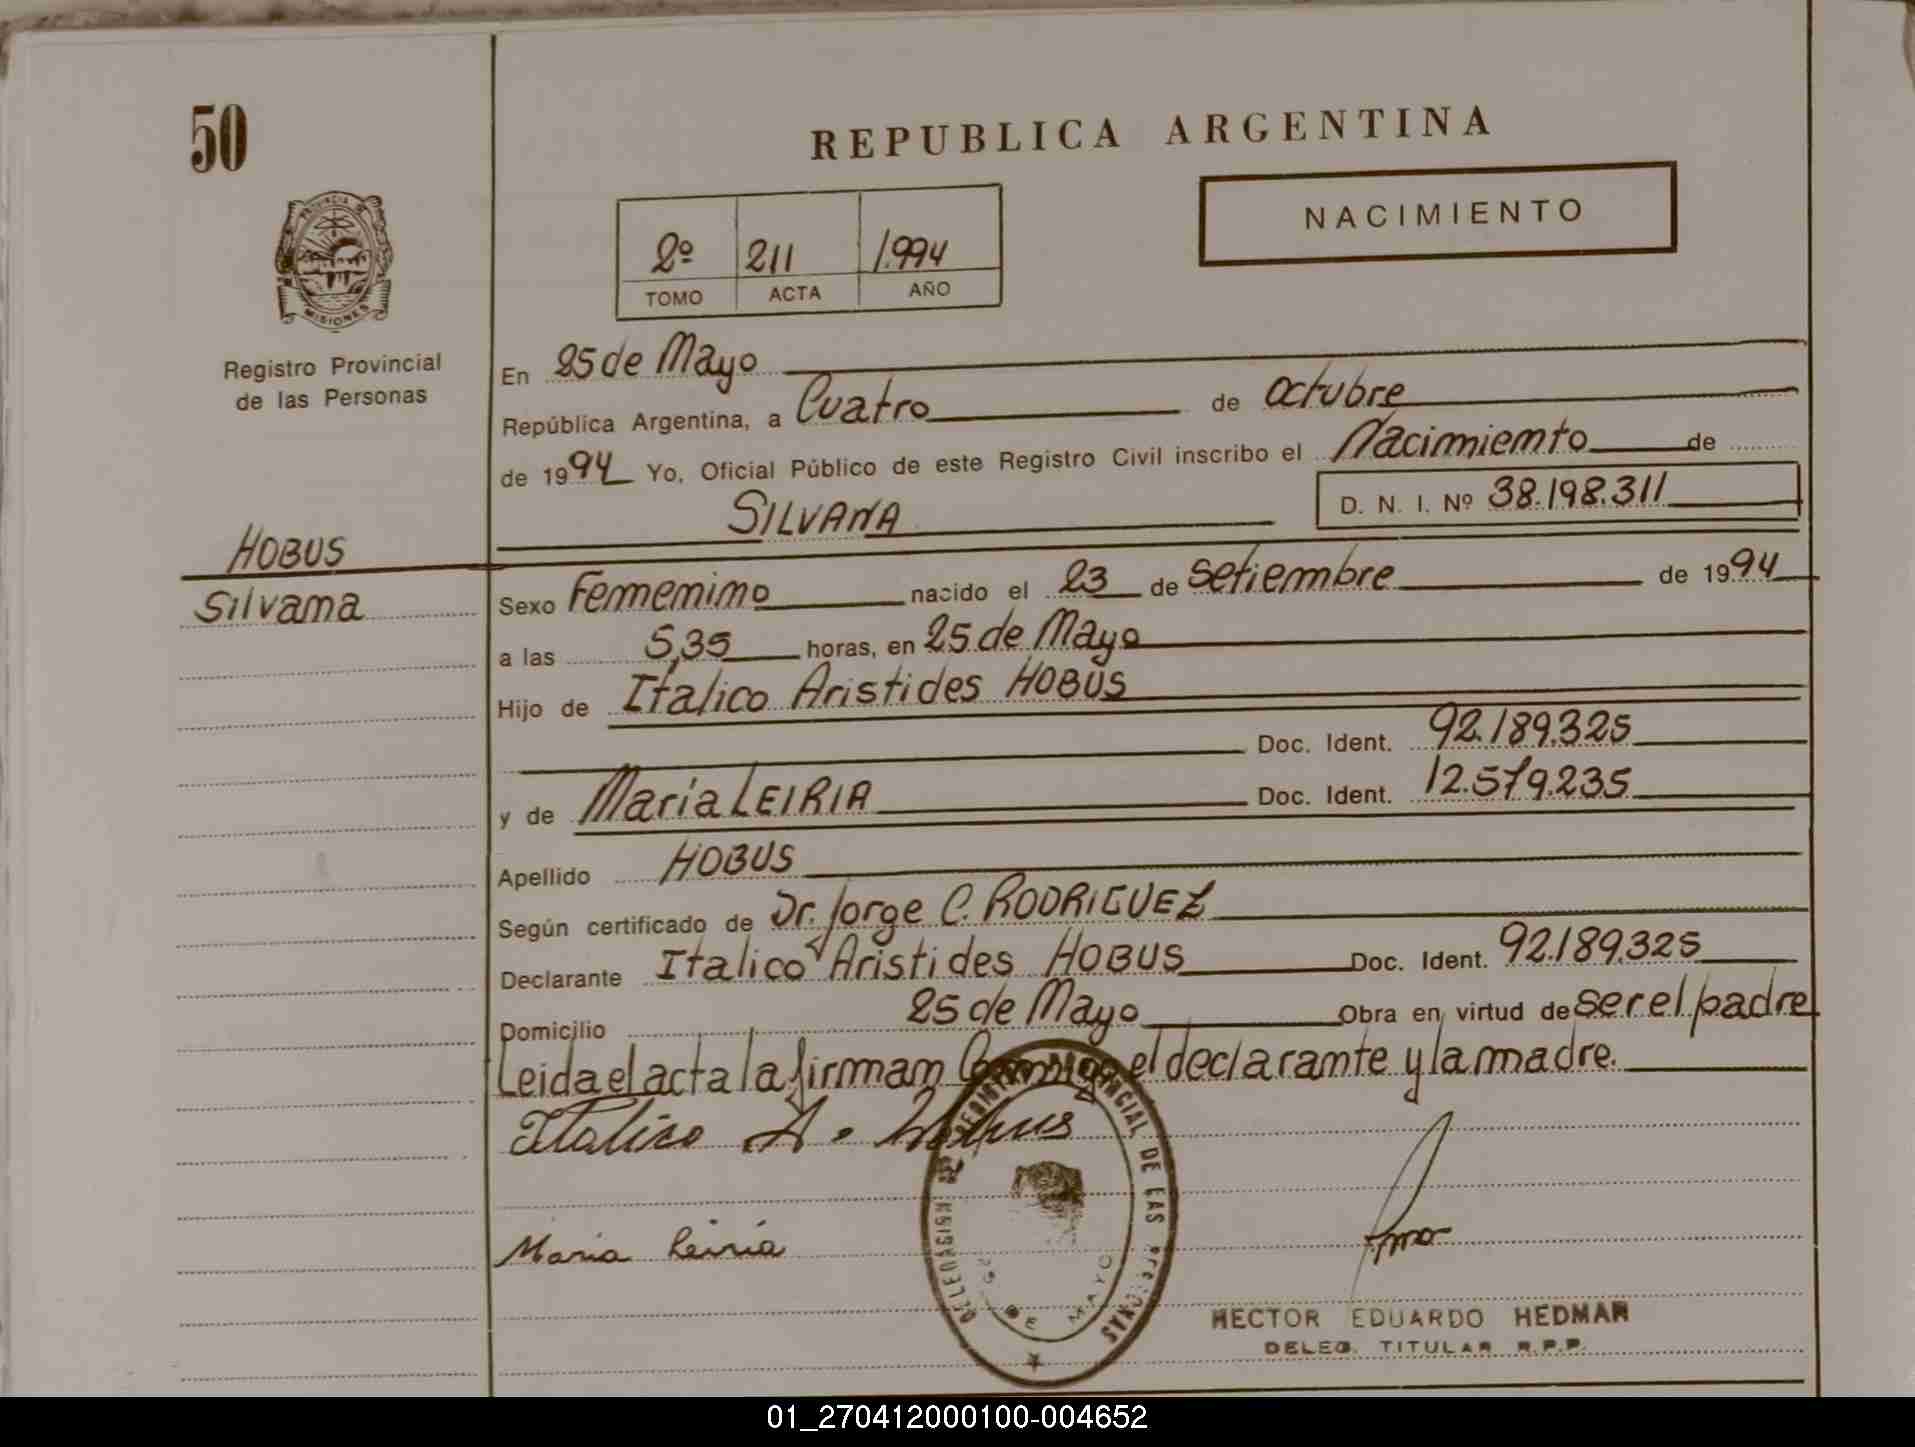 50
REPUBLICA ARGENTINA
NACIMIENTO
2º 211 1.994
TOMO ACTA AÑO
PROVINCIA DE
MISIONES
Registro Provincial
de las Personas
En 25 de Mayo
República Argentina, a Cuatro de octubre
de 1994 Yo, Oficial Público de este Registro Civil inscribo el Nacimiento de
SILVANA D. N. I. Nº 38.198.311
HOBUS
Silvana
Sexo Femenino nacido el 23 de Setiembre de 1994
a las 5,35 horas, en 25 de Mayo
Hijo de Italico Aristides HOBUS
Doc. Ident. 92.189.325
y de Maria LEIRIA Doc. Ident. 12.579.235
Apellido HOBUS
Según certificado de Dr. Jorge C. RODRIGUEZ
Declarante Italico Aristides HOBUS Doc. Ident. 92.189.325
Domicilio 25 de Mayo Obra en virtud de ser el padre
Leida el acta la firman Conmigo el declarante y la madre.
Italico A. Hobus
Maria Leiria
REGISTRO PROVINCIAL DE LAS PERSONAS
DELEGACION
25 DE MAYO
HECTOR EDUARDO HEDMAN
DELEG. TITULAR R.P.P.
01_270412000100-004652